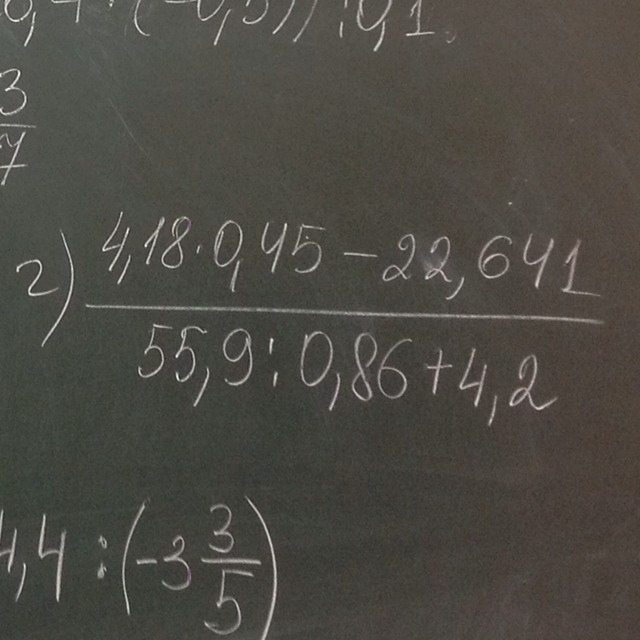 (-0,5)) : 0,1
3
7
г) 4,18·0,45-22,641
55,9:0,86+4,2
4,4 : (-3 3/5)